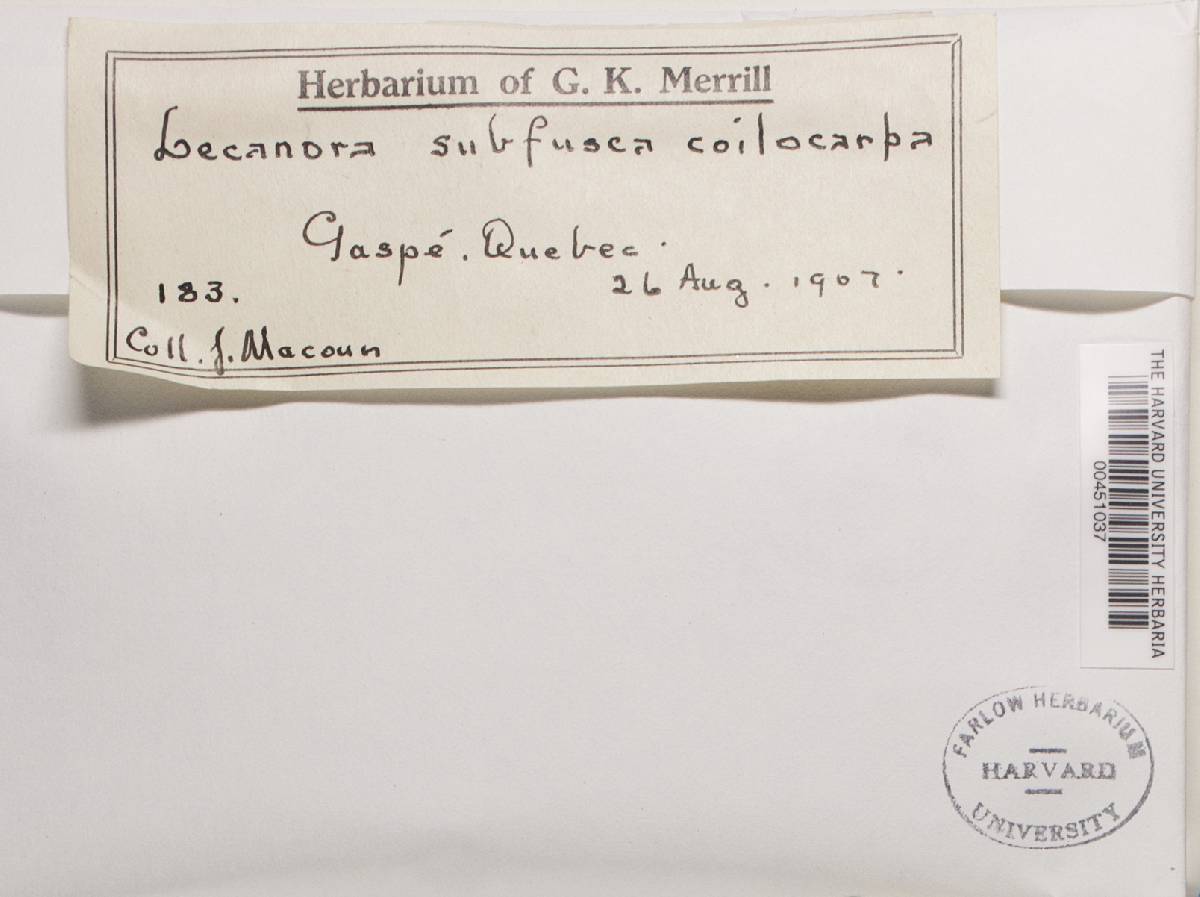 Herbarium of G. K. Merrill
Lecanora subfusca coilocarpa
Gaspé. Quebec.
26 Aug. 1907.
183.
Coll. J. Macoun
THE HARVARD UNIVERSITY HERBARIA
00451037
FARLOW HERBARIUM
HARVARD
UNIVERSITY